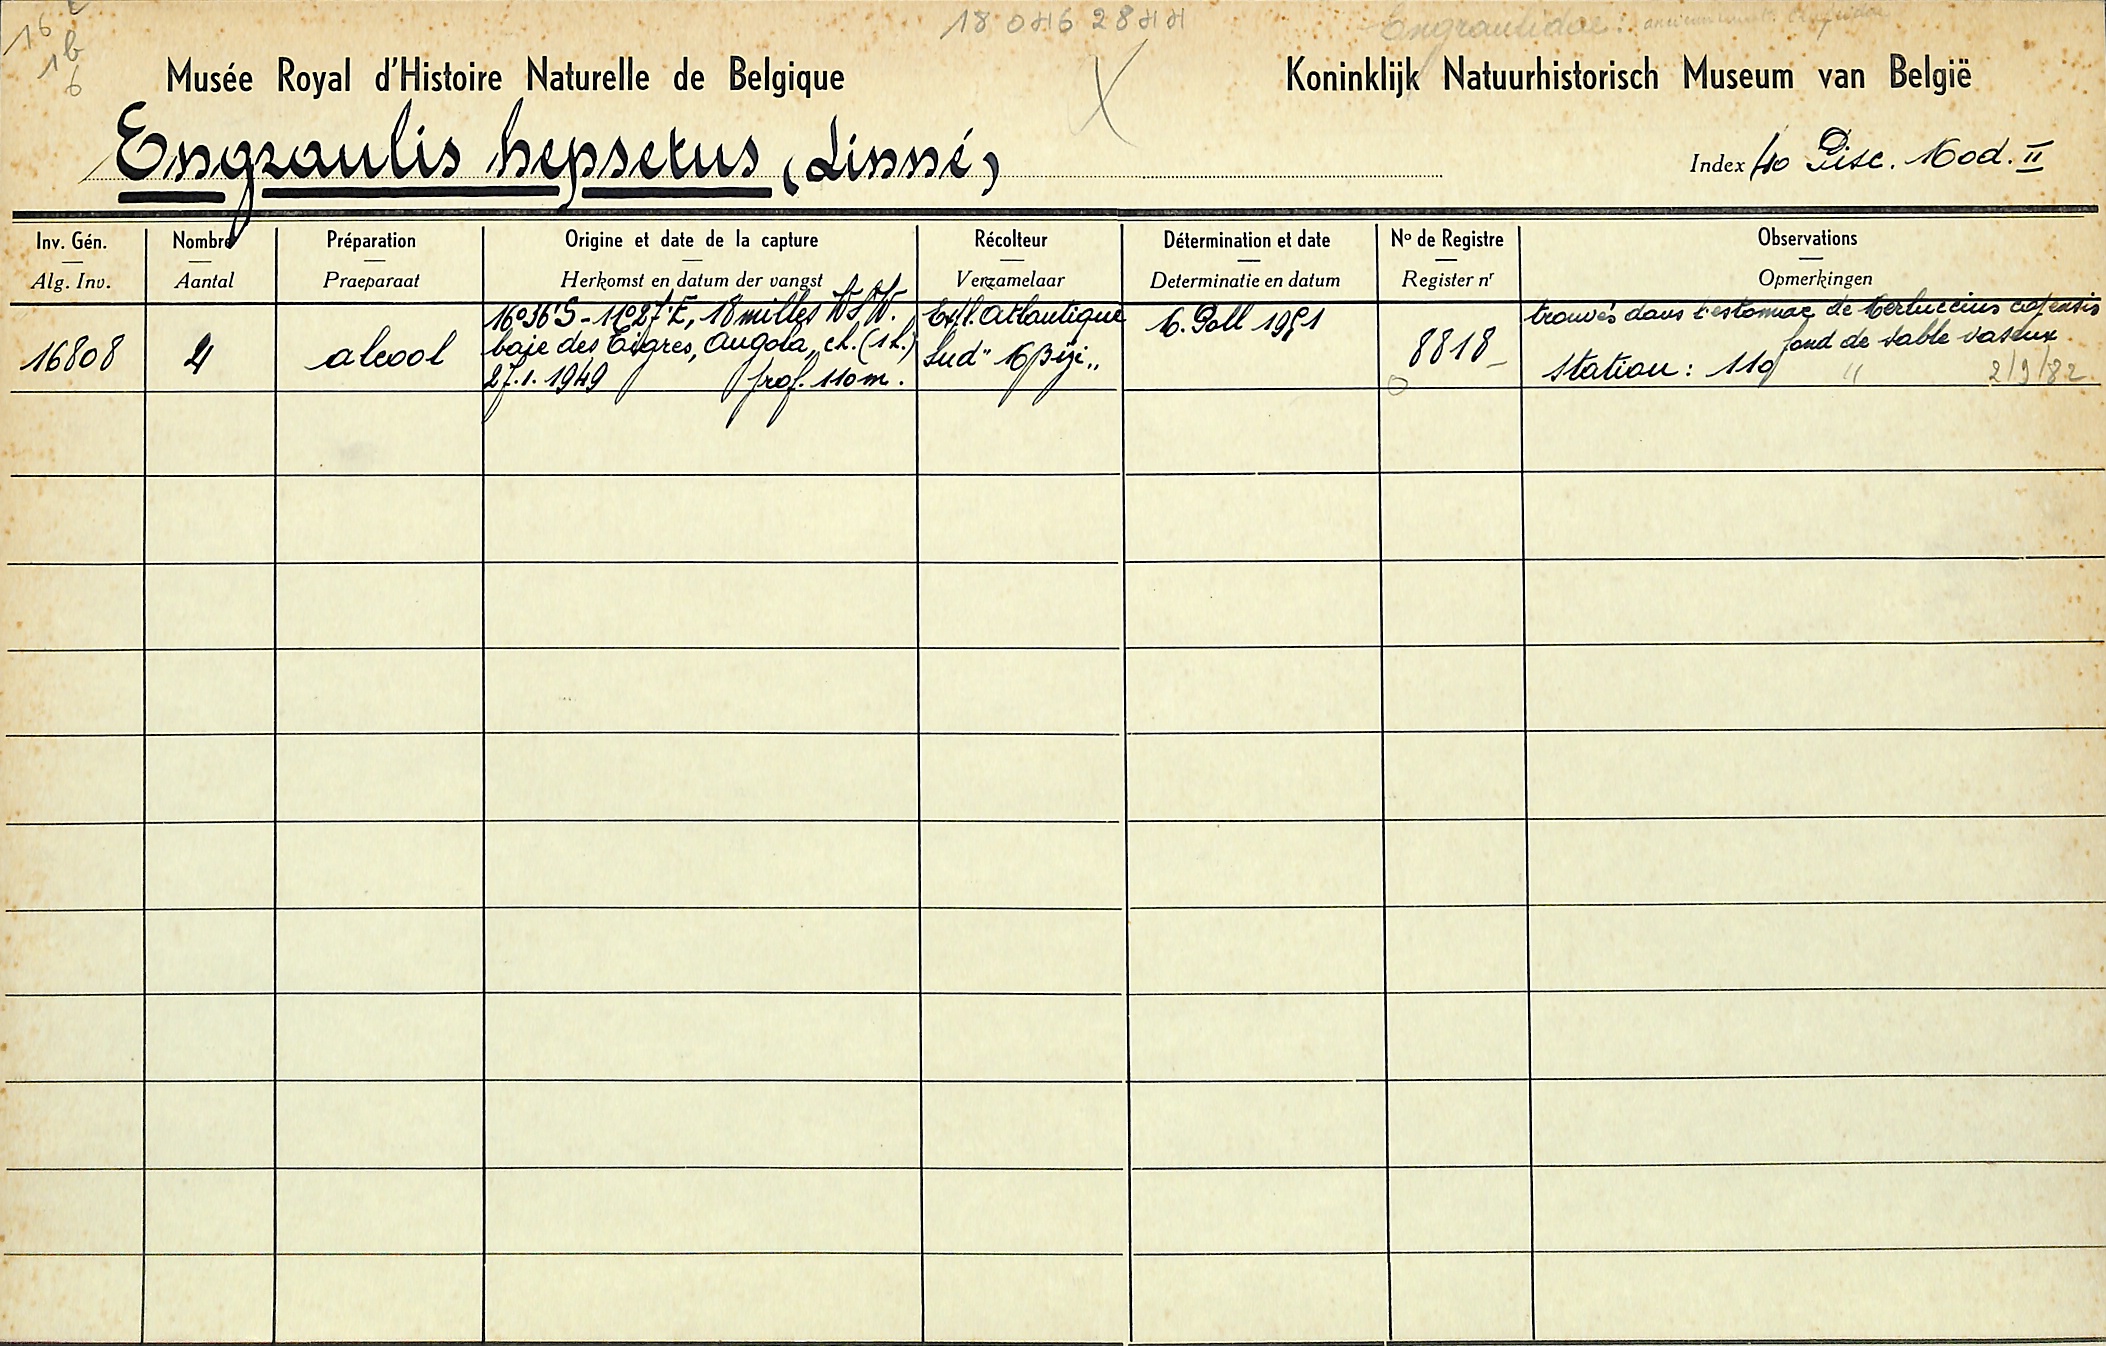 18 0416 2844
Engraulidae :
16
1b
6
Musée Royal d'Histoire Naturelle de Belgique
Koninklijk Natuurhistorisch Museum van België
Engraulis hepsetus (Linné)
Index 40 Pisc. Mod. II
Inv. Gén. Nombre Préparation Origine et date de la capture Récolteur Détermination et date No de Registre Observations
Alg. Inv. Aantal Praeparaat Herkomst en datum der vangst Verzamelaar Determinatie en datum Register nr Opmerkingen
16808
4
alcool
16°36'S - 11°27'E, 18 milles WSW.
baie des Tigres, Angola, ch. (1h.)
27.1.1949 prof. 110m.
Exp. Atlantique
Sud "M'Bizi"
M. Poll 1951
8818
trouvés dans l'estomac de Merluccius capensis
fond de sable vaseux
Station : 110 2/9/82